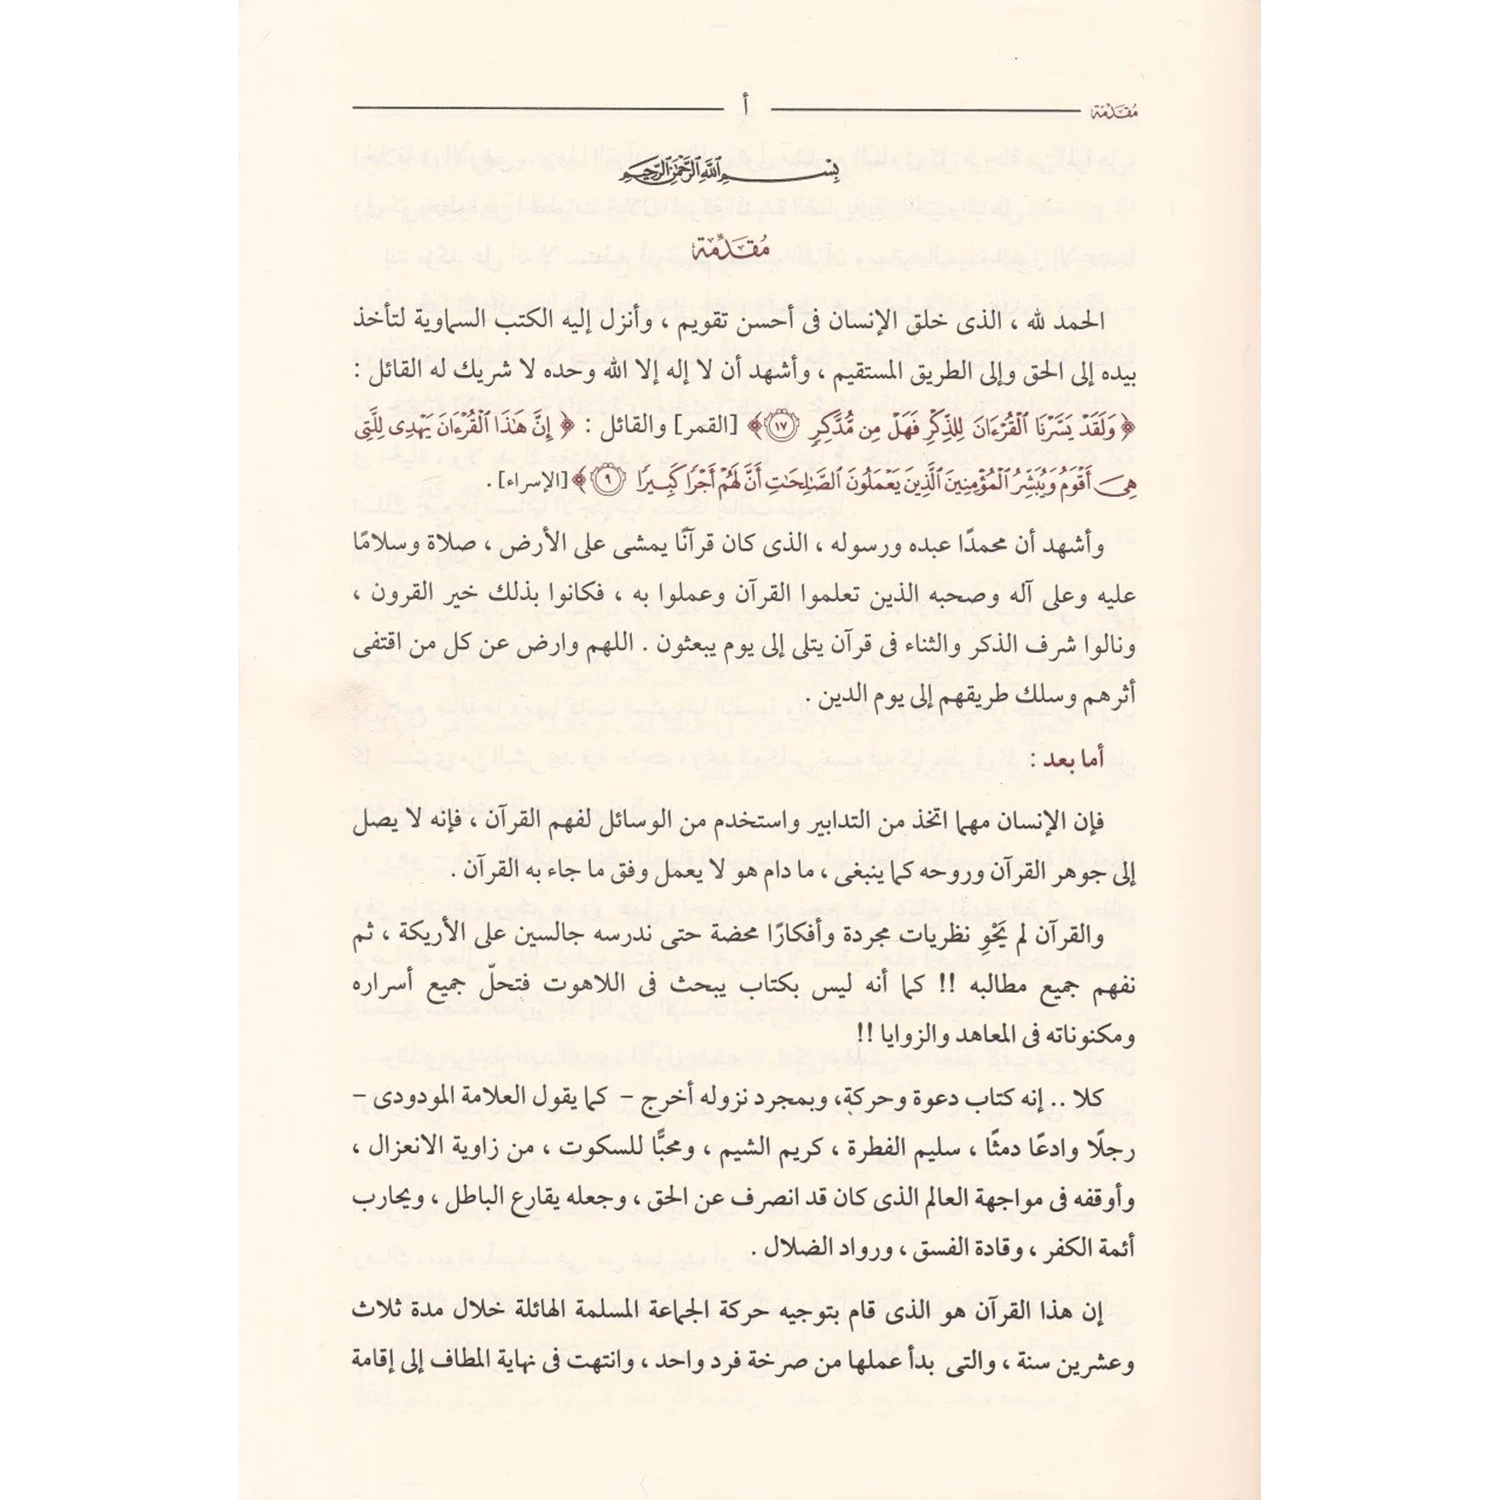 مُقَدِّمَة
أ
بِسْمِ اللَّهِ الرَّحْمَٰنِ الرَّحِيمِ
مُقَدِّمَة
الحمد لله ، الذى خلق الإنسان فى أحسن تقويم ، وأنزل إليه الكتب السماوية لتأخذ
بيده إلى الحق وإلى الطريق المستقيم ، وأشهد أن لا إله إلا الله وحده لا شريك له القائل :
﴿ وَلَقَدْ يَسَّرْنَا ٱلْقُرْءَانَ لِلذِّكْرِ فَهَلْ مِن مُّدَّكِرٍ ١٧ ﴾ [القمر] والقائل : ﴿ إِنَّ هَٰذَا ٱلْقُرْءَانَ يَهْدِى لِلَّتِى
هِىَ أَقْوَمُ وَيُبَشِّرُ ٱلْمُؤْمِنِينَ ٱلَّذِينَ يَعْمَلُونَ ٱلصَّٰلِحَٰتِ أَنَّ لَهُمْ أَجْرًا كَبِيرًا ٩ ﴾ [الإسراء] .
وأشهد أن محمدًا عبده ورسوله ، الذى كان قرآنًا يمشى على الأرض ، صلاة وسلامًا
عليه وعلى آله وصحبه الذين تعلموا القرآن وعملوا به ، فكانوا بذلك خير القرون ،
ونالوا شرف الذكر والثناء فى قرآن يتلى إلى يوم يبعثون . اللهم وارض عن كل من اقتفى
أثرهم وسلك طريقهم إلى يوم الدين .
أما بعد :
فإن الإنسان مهما اتخذ من التدابير واستخدم من الوسائل لفهم القرآن ، فإنه لا يصل
إلى جوهر القرآن وروحه كما ينبغى ، ما دام هو لا يعمل وفق ما جاء به القرآن .
والقرآن لم يَحْوِ نظريات مجردة وأفكارًا محضة حتى ندرسه جالسين على الأريكة ، ثم
نفهم جميع مطالبه !! كما أنه ليس بكتاب يبحث فى اللاهوت فتحلّ جميع أسراره
ومكنوناته فى المعاهد والزوايا !!
كلا .. إنه كتاب دعوة وحركة، وبمجرد نزوله أخرج - كما يقول العلامة المودودى -
رجلًا وادعًا دمثًا ، سليم الفطرة ، كريم الشيم ، ومحبًّا للسكوت ، من زاوية الانعزال ،
وأوقفه فى مواجهة العالم الذى كان قد انصرف عن الحق ، وجعله يقارع الباطل ، ويحارب
أئمة الكفر ، وقادة الفسق ، ورواد الضلال .
إن هذا القرآن هو الذى قام بتوجيه حركة الجماعة المسلمة الهائلة خلال مدة ثلاث
وعشرين سنة ، والتى بدأ عملها من صرخة فرد واحد ، وانتهت فى نهاية المطاف إلى إقامة